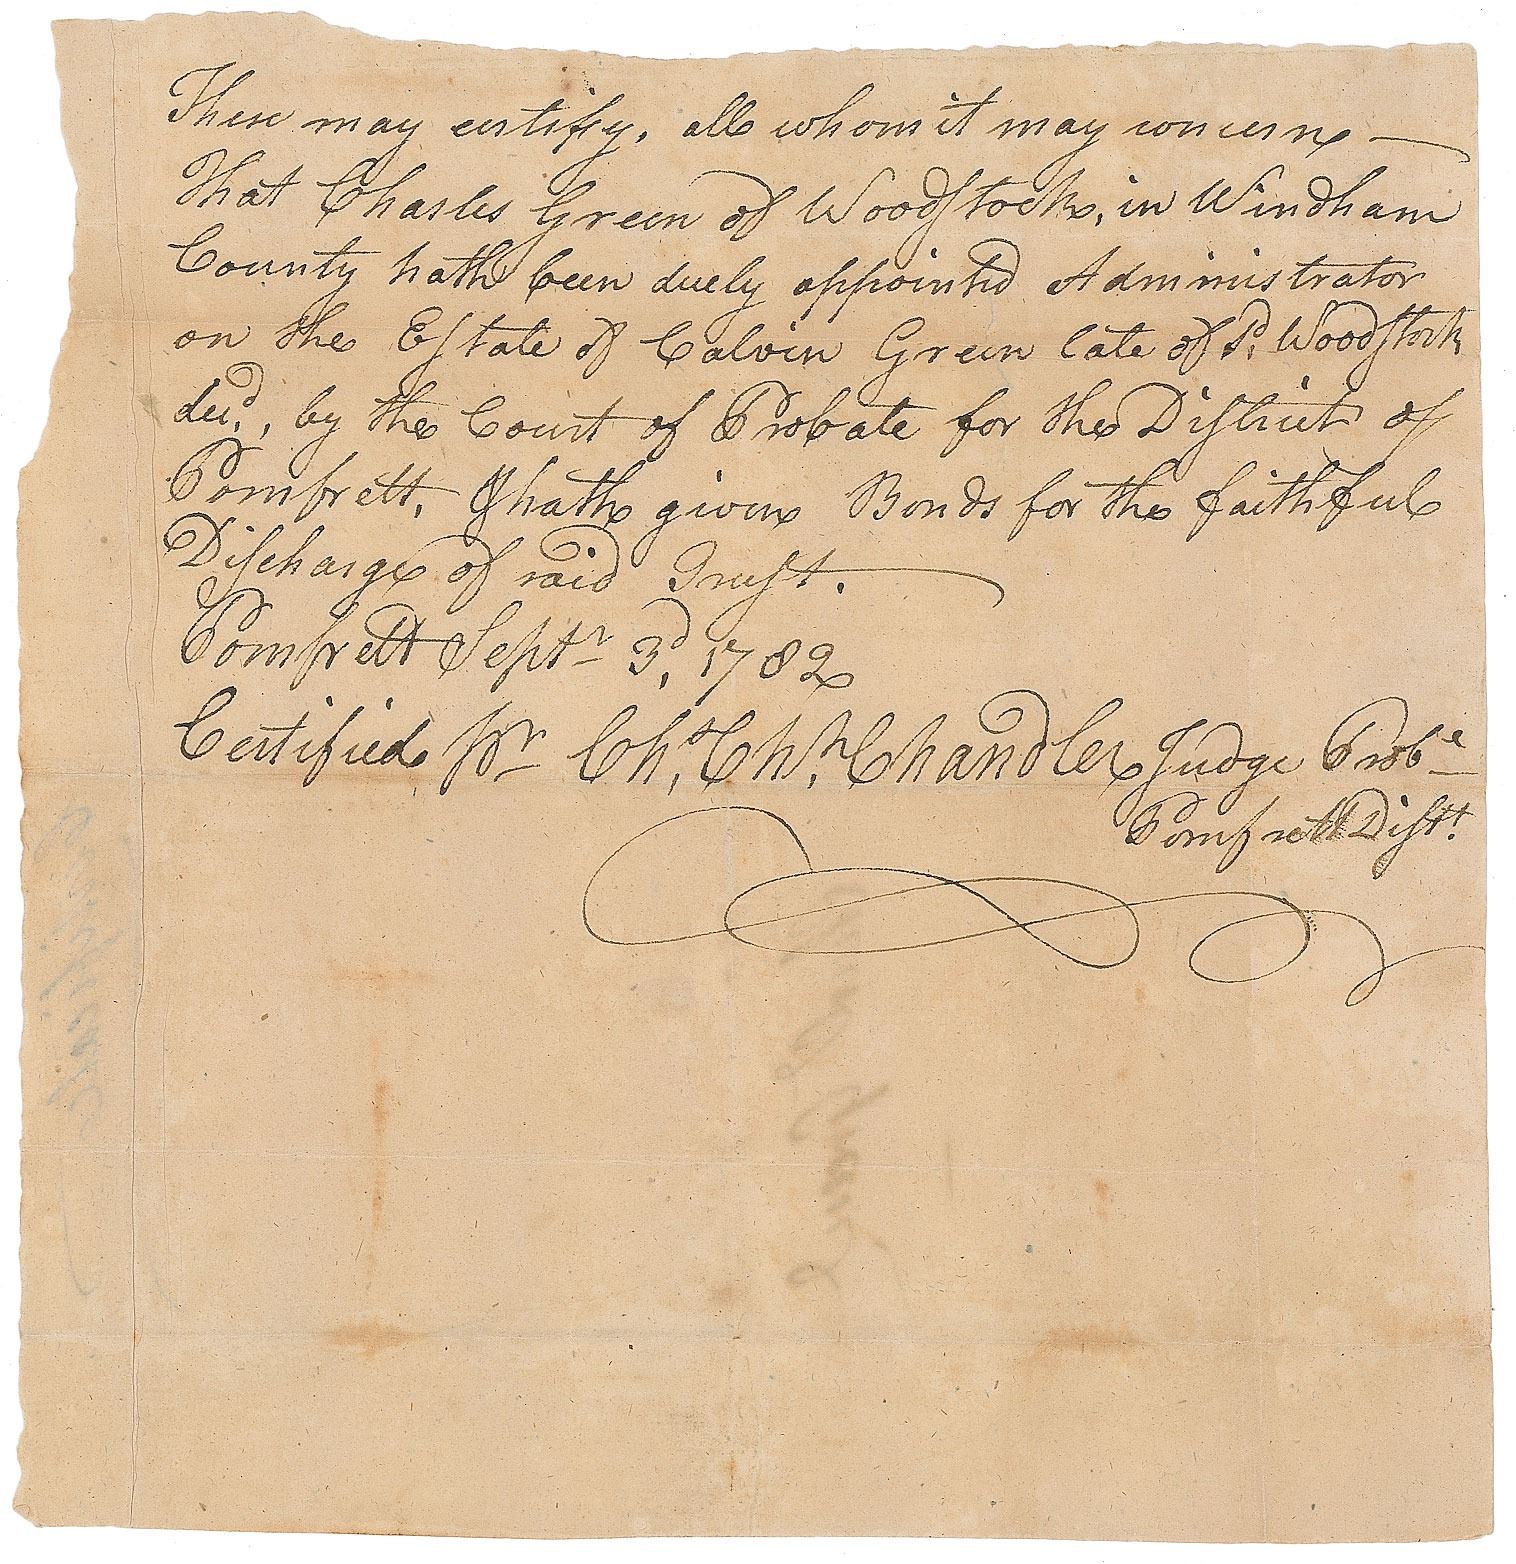 These may certify, all whom it may concern —
That Charles Green of Woodstock, in Windham
County hath been duely appointed Administrator
on the Estate of Calvin Green late of sd. Woodstock
decd., by the Court of Probate for the District of
Pomfrett, & hath given Bonds for the faithful
Discharge of said Trust.
Pomfrett Septr 3d, 1782
Certified pr Chs. Chh. Chandler Judge Probe
Pomfrett Distt.